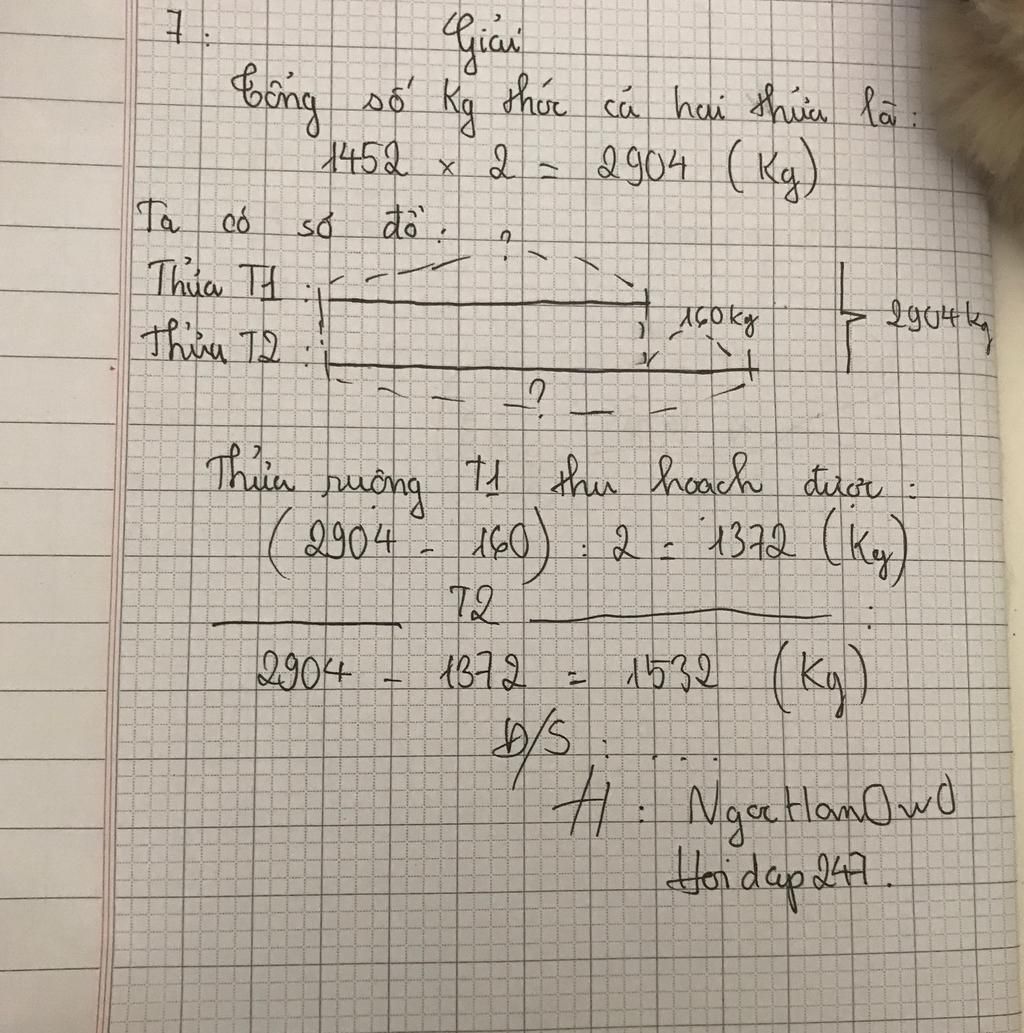 7: Giải
Tổng số Kg thóc cả hai thửa là:
1452 × 2 = 2904 (Kg)
Ta có sơ đồ:
?
Thửa T1:
160kg
2904kg
Thửa T2:
?
Thửa ruộng T1 thu hoạch được:
(2904 - 160) : 2 = 1372 (Kg)
T2 :
2904 - 1372 = 1532 (Kg)
Đ/S : . . .
H : NgocHanOwO
Hoidap247.